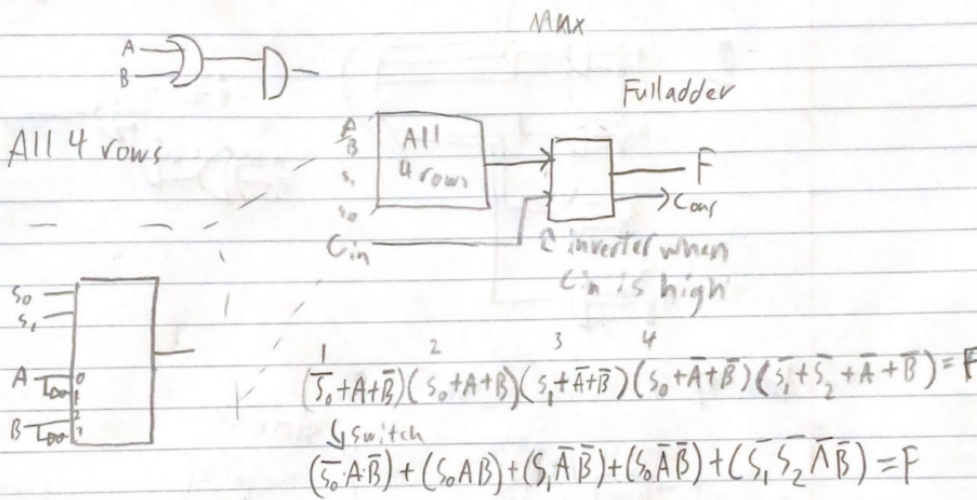 Mux
A
B
Full adder
All 4 rows
A
B
S₁
S₀
All
4 rows
F
Cout
Cin
inverter when
Cin is high
S₀
S₁
A
B
0
1
2
3
1 2 3 4
(S̅₀+A+B̅)(S₀+A+B)(S₁+A̅+B̅)(S₀+A̅+B̅)(S̅₁+S̅₂+A̅+B̅)=F
↳ switch
(S̅₀·A·B̅)+(S₀AB)+(S₁A̅B̅)+(S₀A̅B̅)+(S̅₁S̅₂A̅B̅)=F